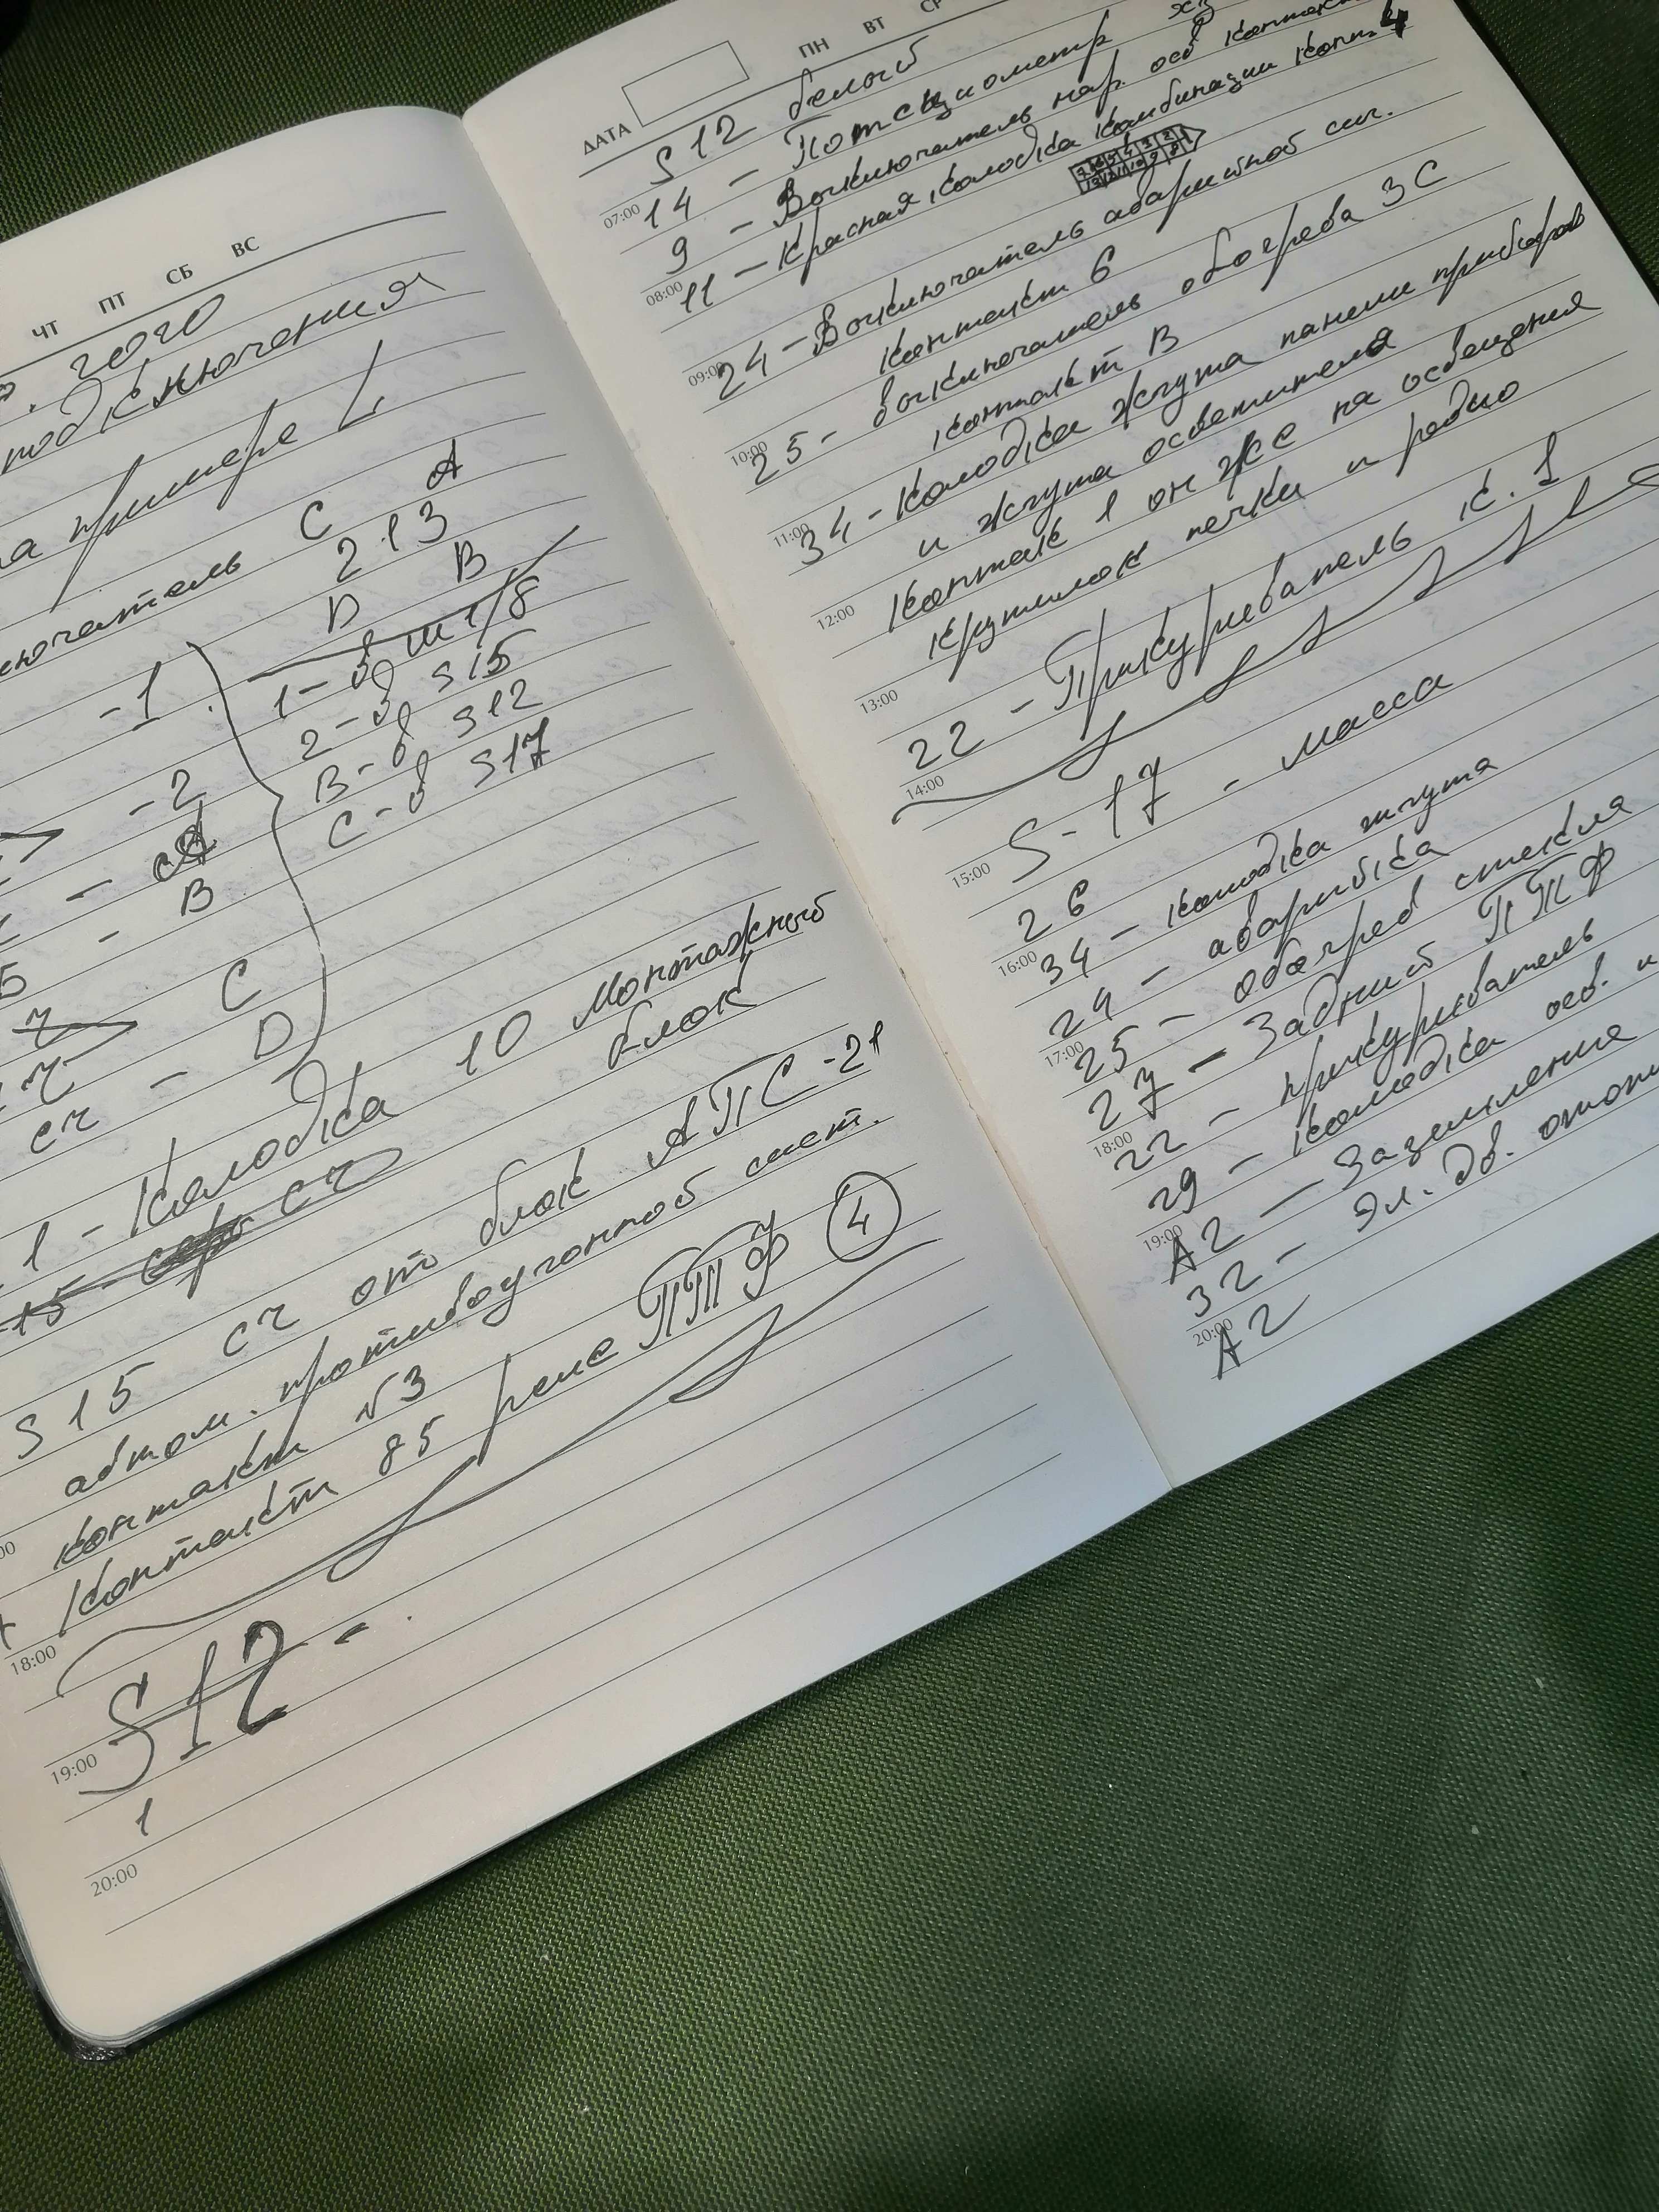 ЧТ ПТ СБ ВС
2020
подключения
на примере L
С А
213
D В
-1
1-в ш1/8
2-в S15
В-в S12
С-в S17
-2
-
- В
С
сч - D
1 - Колодка 10 монтажный
блок
15 - сч
S15 сч от блок АПС-21
автом. противоугонной сист.
контакт №3
Контакт 85 реле ПТФ 4
18:00
S12 -
19:00
1
20:00
ПН ВТ СР
ДАТА
S12 белый
14 - Потенциометр
07:00
9 - Выключатель нар. осв
11 - Красная, колодка комбинации конт. 4
08:00
24 - Выключатель аварийной сиг.
контакт 6
09:00
25 - выключатель обогрева ЗС
контакт В
10:00
34 - Колодка жгута панели приборов
и жгута осветителя
11:00
Контак 1 он же на освещения
крутилок печки и радио
12:00
22 - Прикуриватель к. 1
13:00
14:00
S-17 - масса
15:00
26
34 - колодка жгута
16:00
24 - аварийка
25 - обогрев стекла
17:00
27 - Задний ПТФ
22 - прикуриватель
18:00
29 - колодка осв. и
А2 - Заземления
19:00
32 - Эл. дв.
А2
20:00